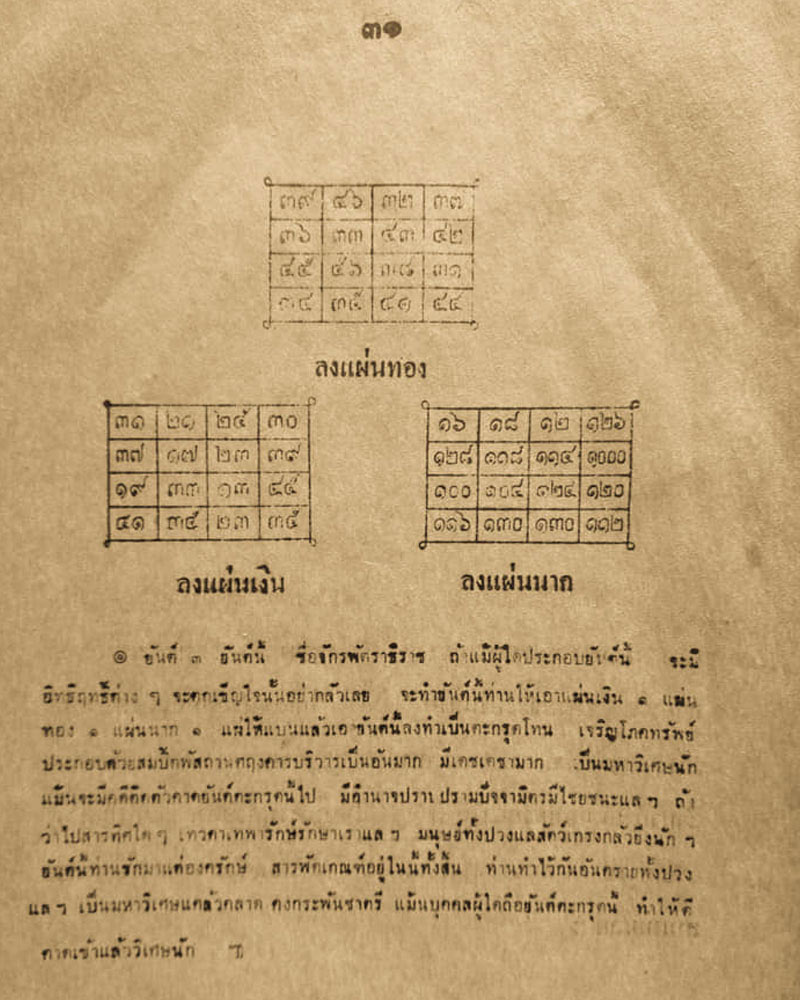 ๓๑
๓๙ ๔๖ ๓๒ ๓๓
๓๖ ๓๓ ๕๓ ๔๒
๔๕ ๕๖ ๓๘ ๓๑
๓๔ ๓๕ ๔๑ ๔๔
ลงแผ่นทอง
๓๑ ๒๑ ๒๕ ๓๐
๓๗ ๑๗ ๒๓ ๓๙
๑๙ ๓๓ ๑๓ ๔๕
๔๑ ๓๕ ๒๓ ๓๕
๑๖ ๑๘ ๑๒ ๑๒๖
๑๒๘ ๑๑๘ ๑๑๔ ๑๐๐๐
๑๐๐ ๑๐๔ ๑๒๔ ๑๒๐
๑๑๖ ๑๓๐ ๑๓๐ ๑๑๒
ลงแผ่นเงิน ลงแผ่นนาก
๏ ยันต์ ๓ ยันต์นี้ ชื่อจักรพัตราธิราช ถ้าแม้ผู้ใดประกอบยันต์นี้ จะมี
อิทธิฤทธิ์ต่าง ๆ อย่ากลัวเลย จะทำยันต์นี้ท่านให้เอาแผ่นเงิน ๑ แผ่น
ทอง ๑ แผ่นนาก ๑ แผ่ให้แบนแล้วเอายันต์นี้ลงทำเป็นตะกรุดโทน เจริญโภคทรัพย์
ประกอบด้วยสมบัติพัสถาน บริวารเป็นอันมาก มีเดชเดชามาก เป็นมหาวิเศษนัก
แม้นจะมีคดี ยันต์ตะกรุดนี้ไป มีอำนาจปราบปรามปัจจามิตรมีไชยชนะแล ๆ ถ้า
ว่าไปสารทิศใด ๆ เทวดาเทพารักษ์รักษาเราแล ๆ มนุษย์ทั้งปวงแลสัตว์เกรงกลัวยิ่งนัก ๆ
ยันต์นี้ท่านรักษาแต่องครักษ์ สารพัดเกณฑ์อยู่ในนี้ทั้งสิ้น ท่านทำไว้กันอันตรายทั้งปวง
แล ๆ เป็นมหาวิเศษแคล้วคลาด คงกระพันชาตรี แม้นบุคคลผู้ใดถือยันต์ตะกรุดนี้ ทำให้ดี
คาดเข้าแล้ววิเศษนัก ฯ